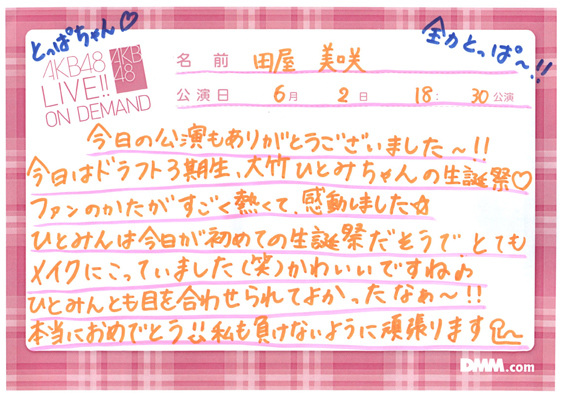 とっぱちゃん♡
全力とっぱ〜!!
AKB48
LIVE!!
ON DEMAND
AKB
48
名 前 田屋 美咲
公演日 6月 2日 18: 30公演
今日の公演もありがとうございました〜!!
今日はドラフト3期生、大竹ひとみちゃんの生誕祭♡
ファンのかたがすごく熱くて、感動しました☆
ひとみんは今日が初めての生誕祭だそうで、とても
メイクにこっていました(笑)かわいいですね♪
ひとみんとも目を合わせられてよかったなぁ〜!!
本当におめでとう!!私も負けないように頑張ります
DMM.com